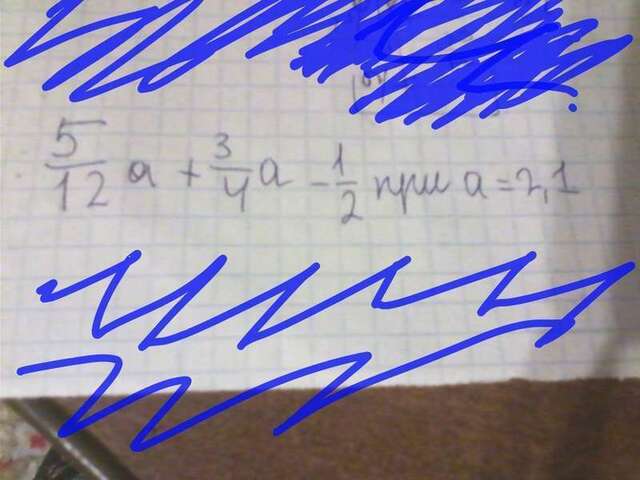 5/12 a + 3/4 a - 1/2 при a = 2,1